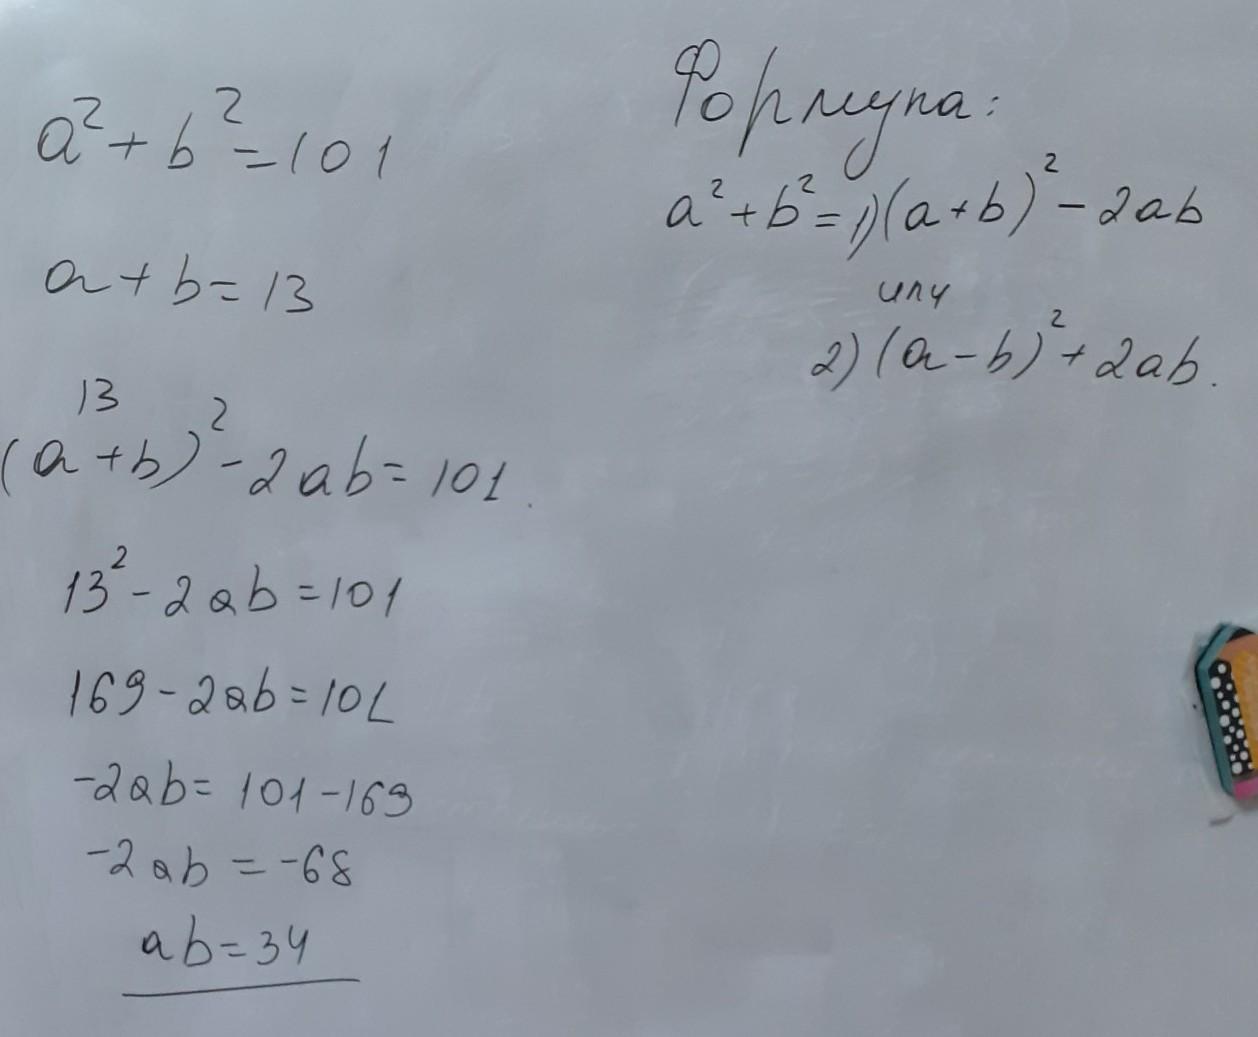 a² + b² = 101
a + b = 13
13
(a + b)² - 2ab = 101.
13² - 2ab = 101
169 - 2ab = 101
-2ab = 101 - 169
-2ab = -68
ab = 34
Формула:
a² + b² = 1) (a + b)² - 2ab
или
2) (a - b)² + 2ab.